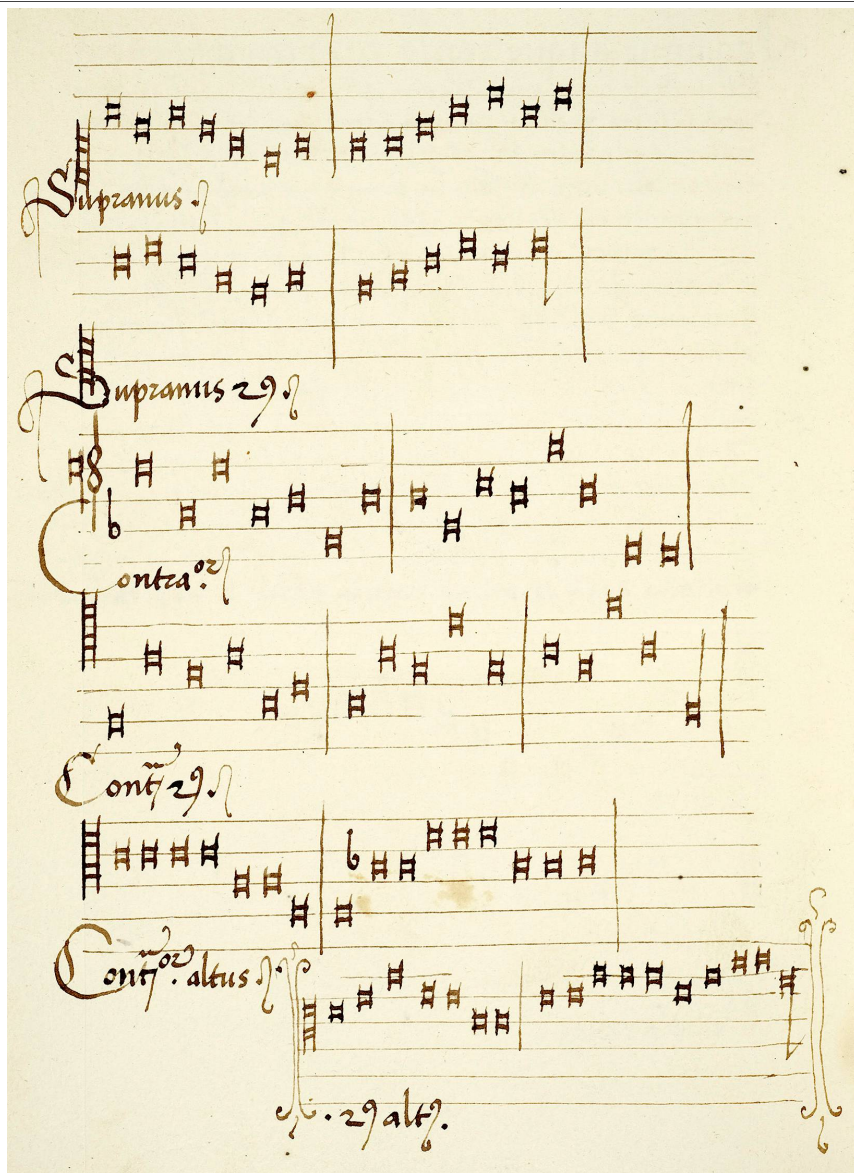 Supranus.
Supranus 29.
Contra.or
Cont 29.
Cont or. altus.
. 29 alt9.